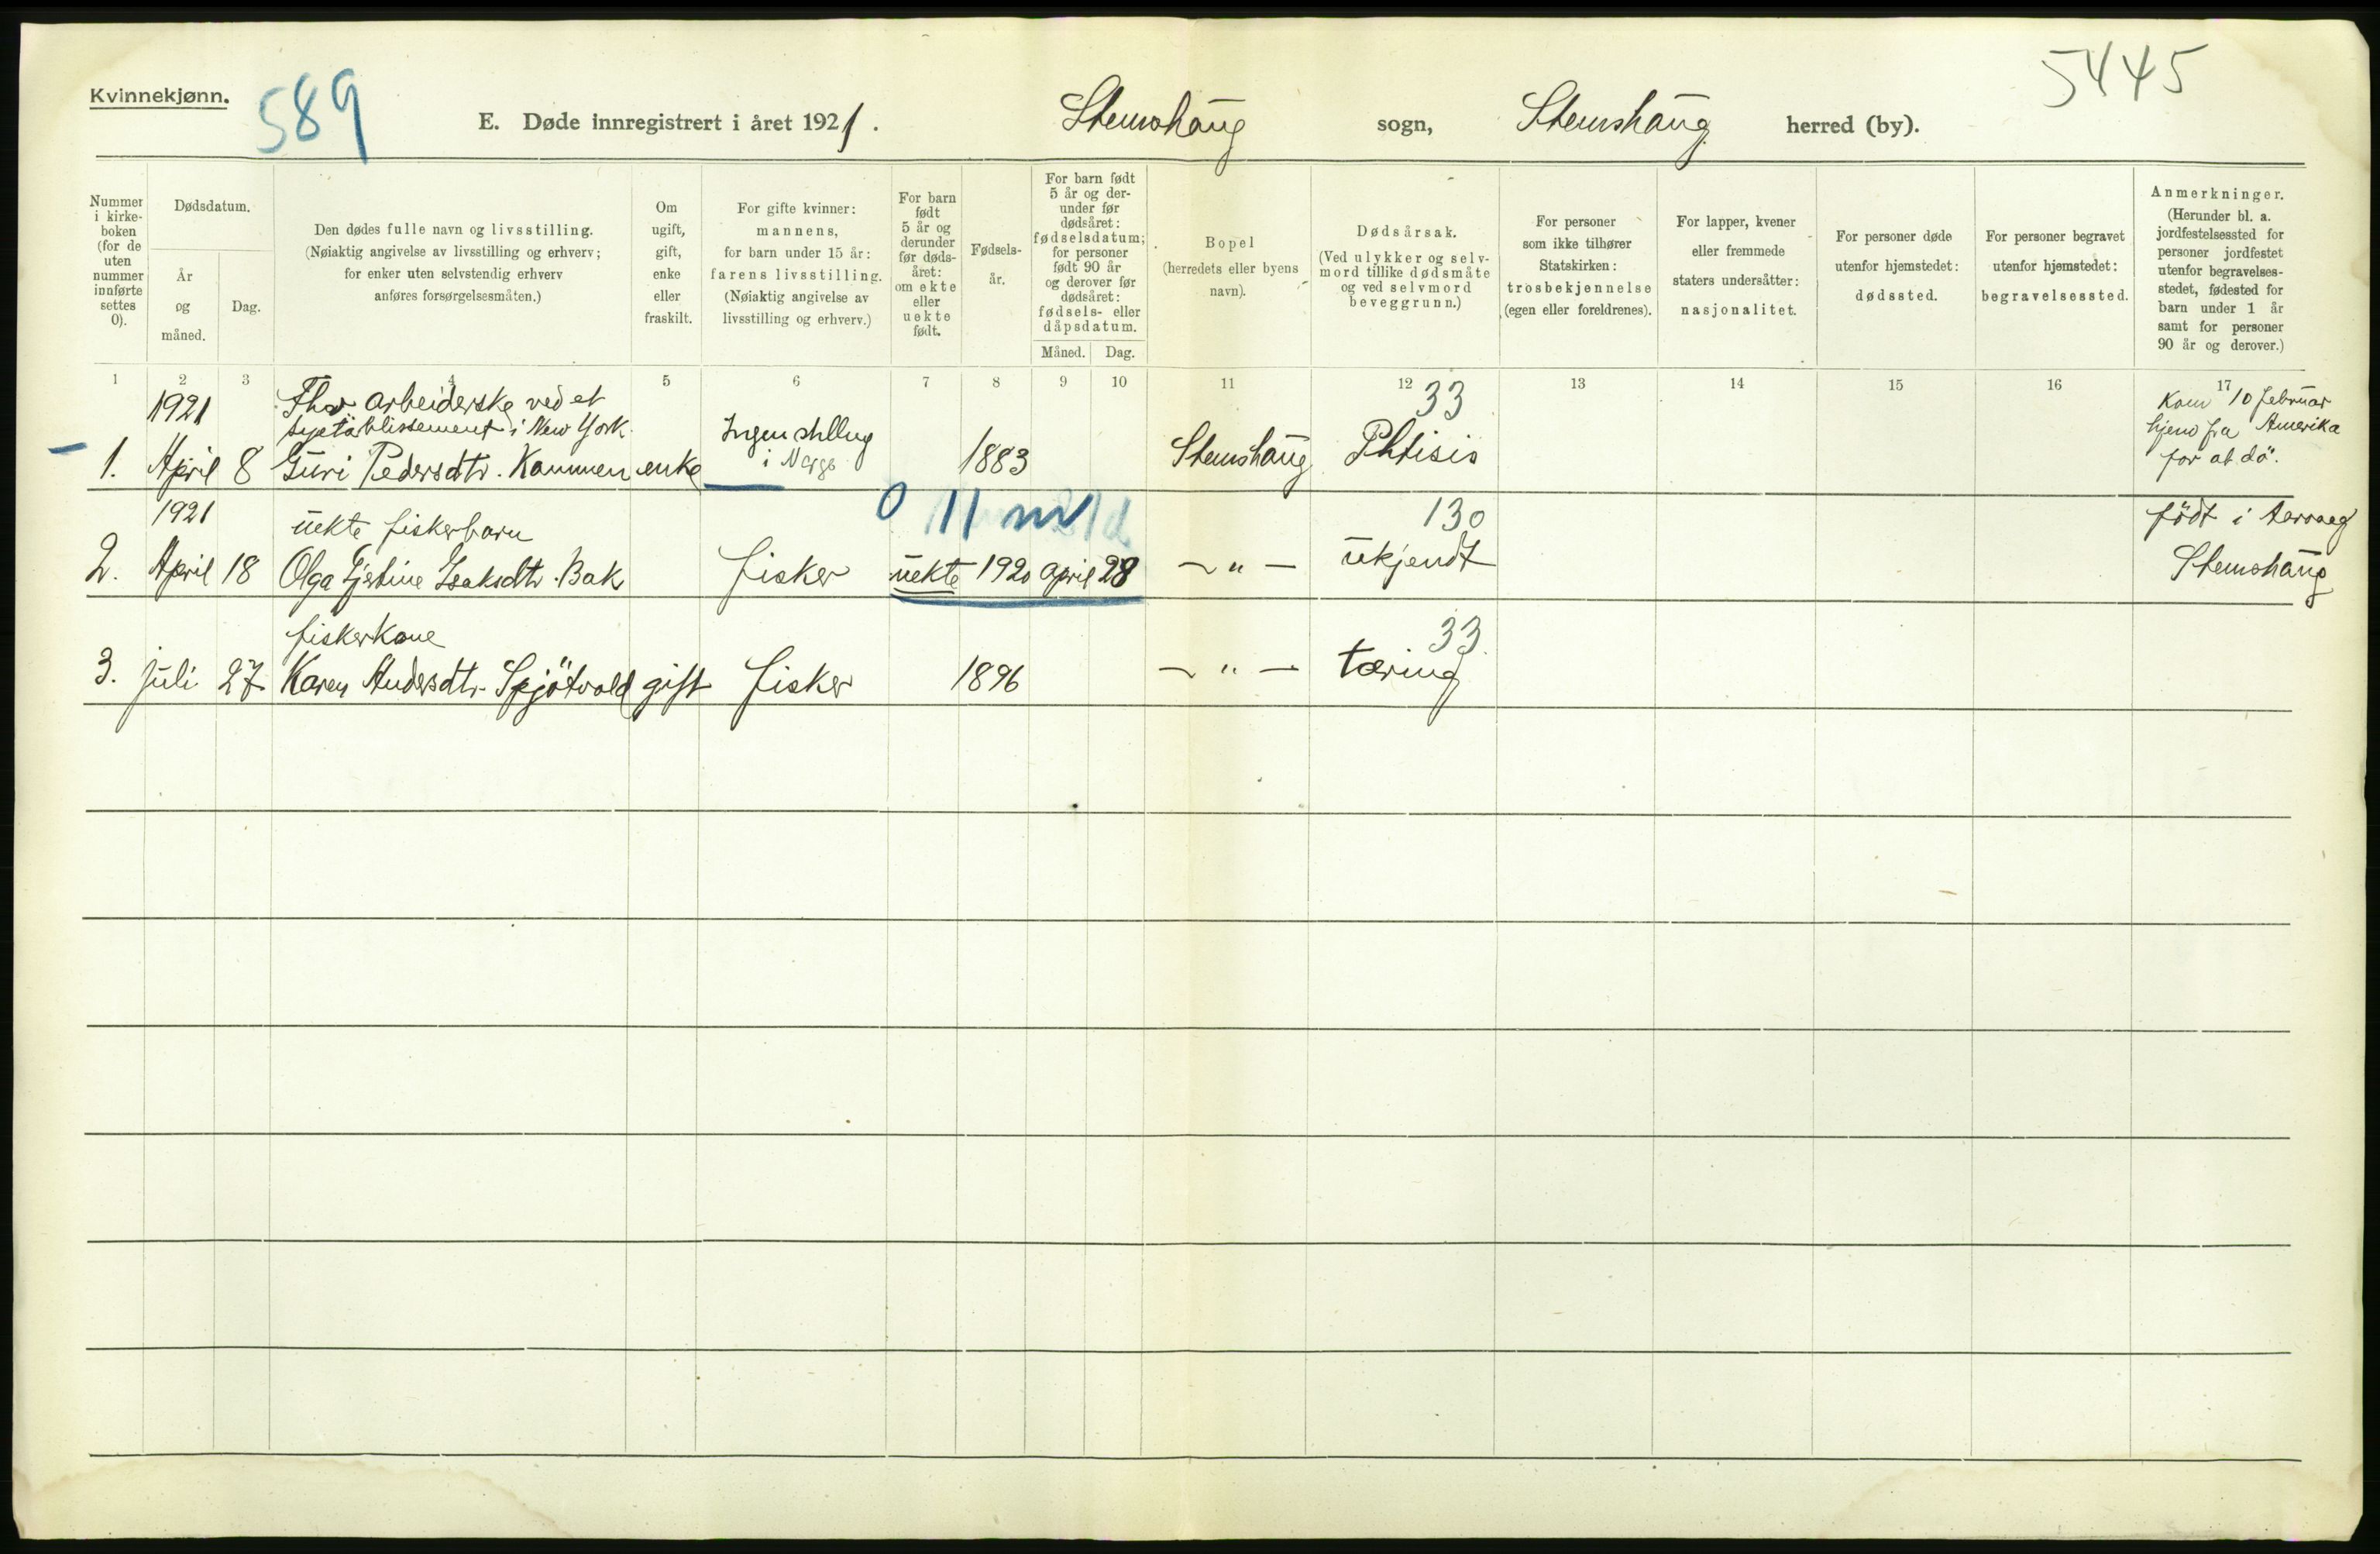 Kvinnekjønn.
589
E. Døde innregistrert i året 1921.
Stemshaug sogn, Stemshaug herred (by).
5445
Nummer i kirkeboken (for de uten nummer innførte settes 0).
Dødsdatum.
År og måned.
Dag.
Den dødes fulle navn og livsstilling.
(Nøiaktig angivelse av livsstilling og erhverv;
for enker uten selvstendig erhverv
anføres forsørgelsesmåten.)
Om
ugift,
gift,
enke
eller
fraskilt.
For gifte kvinner:
mannens,
for barn under 15 år:
farens livsstilling.
(Nøiaktig angivelse av
livsstilling og erhverv.)
For barn
født
5 år og
derunder
før døds-
året:
om ekte
eller
uekte
født.
Fødsels-
år.
For barn født
5 år og der-
under før
dødsåret:
fødselsdatum;
for personer
født 90 år
og derover før
dødsåret:
fødsels- eller
dåpsdatum.
Måned. Dag.
Bopel
(herredets eller byens
navn).
Dødsårsak.
(Ved ulykker og selv-
mord tillike dødsmåte
og ved selvmord
beveggrunn.)
For personer
som ikke tilhører
Statskirken:
trosbekjennelse
(egen eller foreldrenes).
For lapper, kvener
eller fremmede
staters undersåtter:
nasjonalitet.
For personer døde
utenfor hjemstedet:
dødssted.
For personer begravet
utenfor hjemstedet:
begravelsessted.
Anmerkninger.
(Herunder bl. a.
jordfestelsessted for
personer jordfestet
utenfor begravelses-
stedet, fødested for
barn under 1 år
samt for personer
90 år og derover.)
1 2 3 4 5 6 7 8 9 10 11 12 13 14 15 16 17
1921
arbeiderske ved et
syetablissement i New York.
1. April 8 Guri Pedersdtr. Kammen enke
Ingen stlling
i Norge
1883 Stemshaug
33
Phtisis
Kom 10 februar
hjem fra Amerika
for at dö.
1921
uekte fiskerbarn
0 11 m
2. April 18 Olga Gjertine Isaksdtr. Bak fisker uekte 1920 April 28 - " -
130
ukjendt
födt i
Stemshaug
fiskerkone
3. juli 27 Karen Andersdtr. Spjötvold gift fisker 1896 - " -
33
tæring